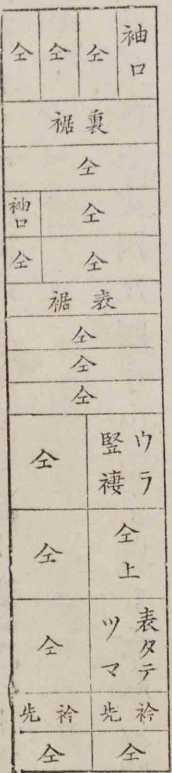 袖口
仝
仝
仝
裏裾
仝
仝
袖口
仝
仝
表裾
仝
仝
仝
ウラ
竪褄
仝
仝上
仝
表タテ
ツマ
仝
衿先
衿先
仝
仝